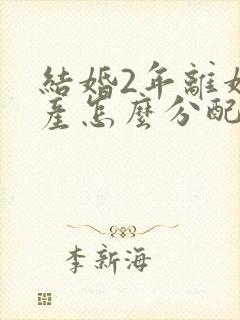 結婚2年離
產怎麼分配
李新海